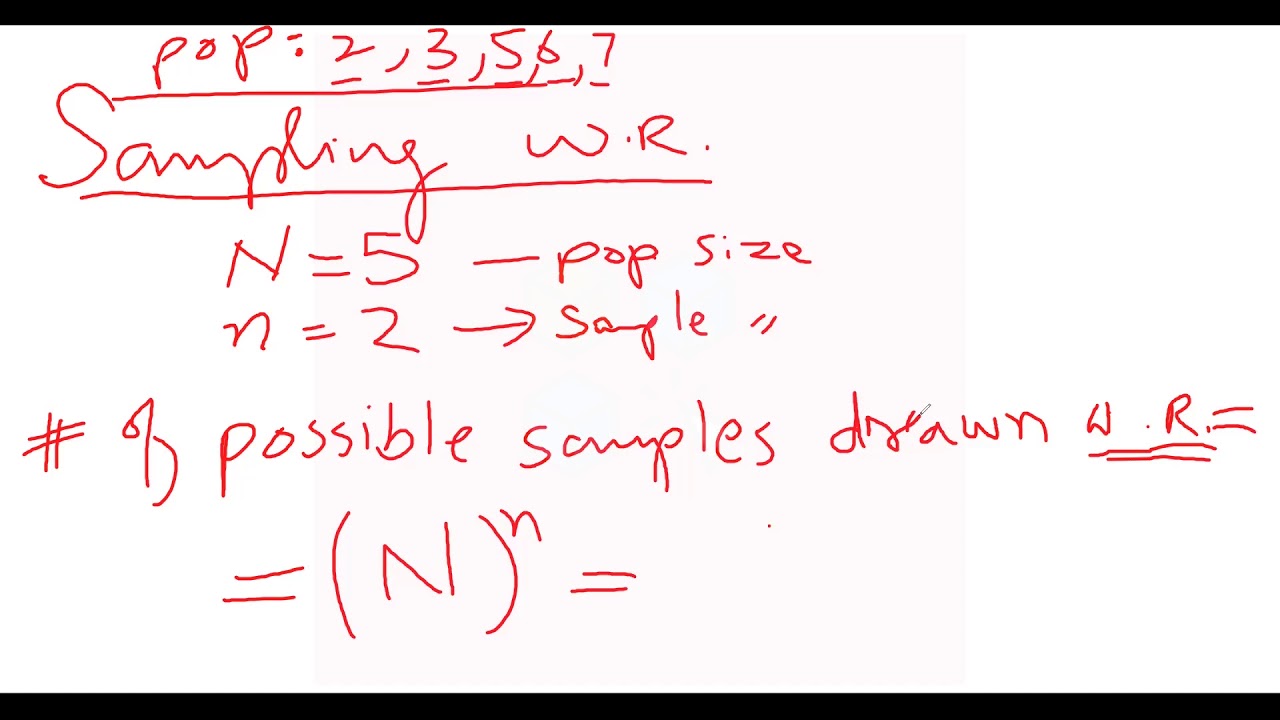 pop: 2, 3, 5, 6, 7
Sampling W.R.
N = 5 — pop size
n = 2 → Sample "
# of possible samples drawn W.R. =
= (N)ⁿ =